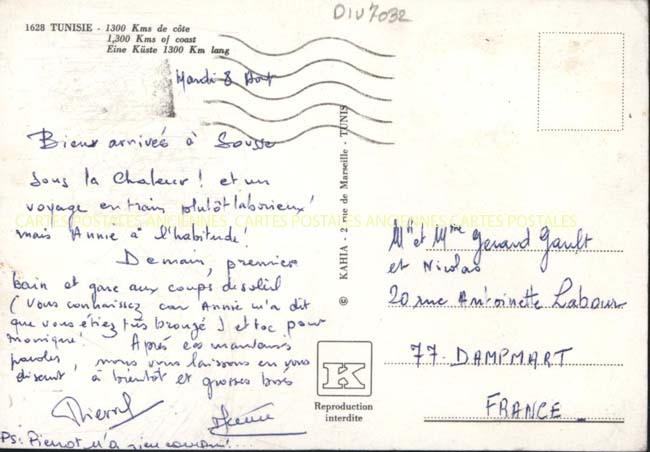 DIV7032
1628 TUNISIE - 1300 Kms de côte
1,300 Kms of coast
Eine Küste 1300 Km lang
Mardi 8 Aout
Bien arrivés à Sousse
sous la Chaleur ! et un
voyage en train plutôt laborieux !
mais Annie a l'habitude !
Demain, premier
bain et gare aux coups de soleil
( Vous connaissez car Annie m'a dit
que vous étiez très bronzé ) et toc pour
monique ! Après ces mauvaises
paroles, nous vous laissons en vous
disant à bientôt et grosses bises
Pierrot
Ps: Pierrot n'a rien compris !...
© KAHIA - 2 rue de Marseille - TUNIS
K
Reproduction
interdite
Mr et Mme Gerard Gault
et Nicolas
20 rue Antoinette Labour
77. DAMPMART
FRANCE
CARTES POSTALES ANCIENNES CARTES POSTALES ANCIENNES CARTES POSTALES